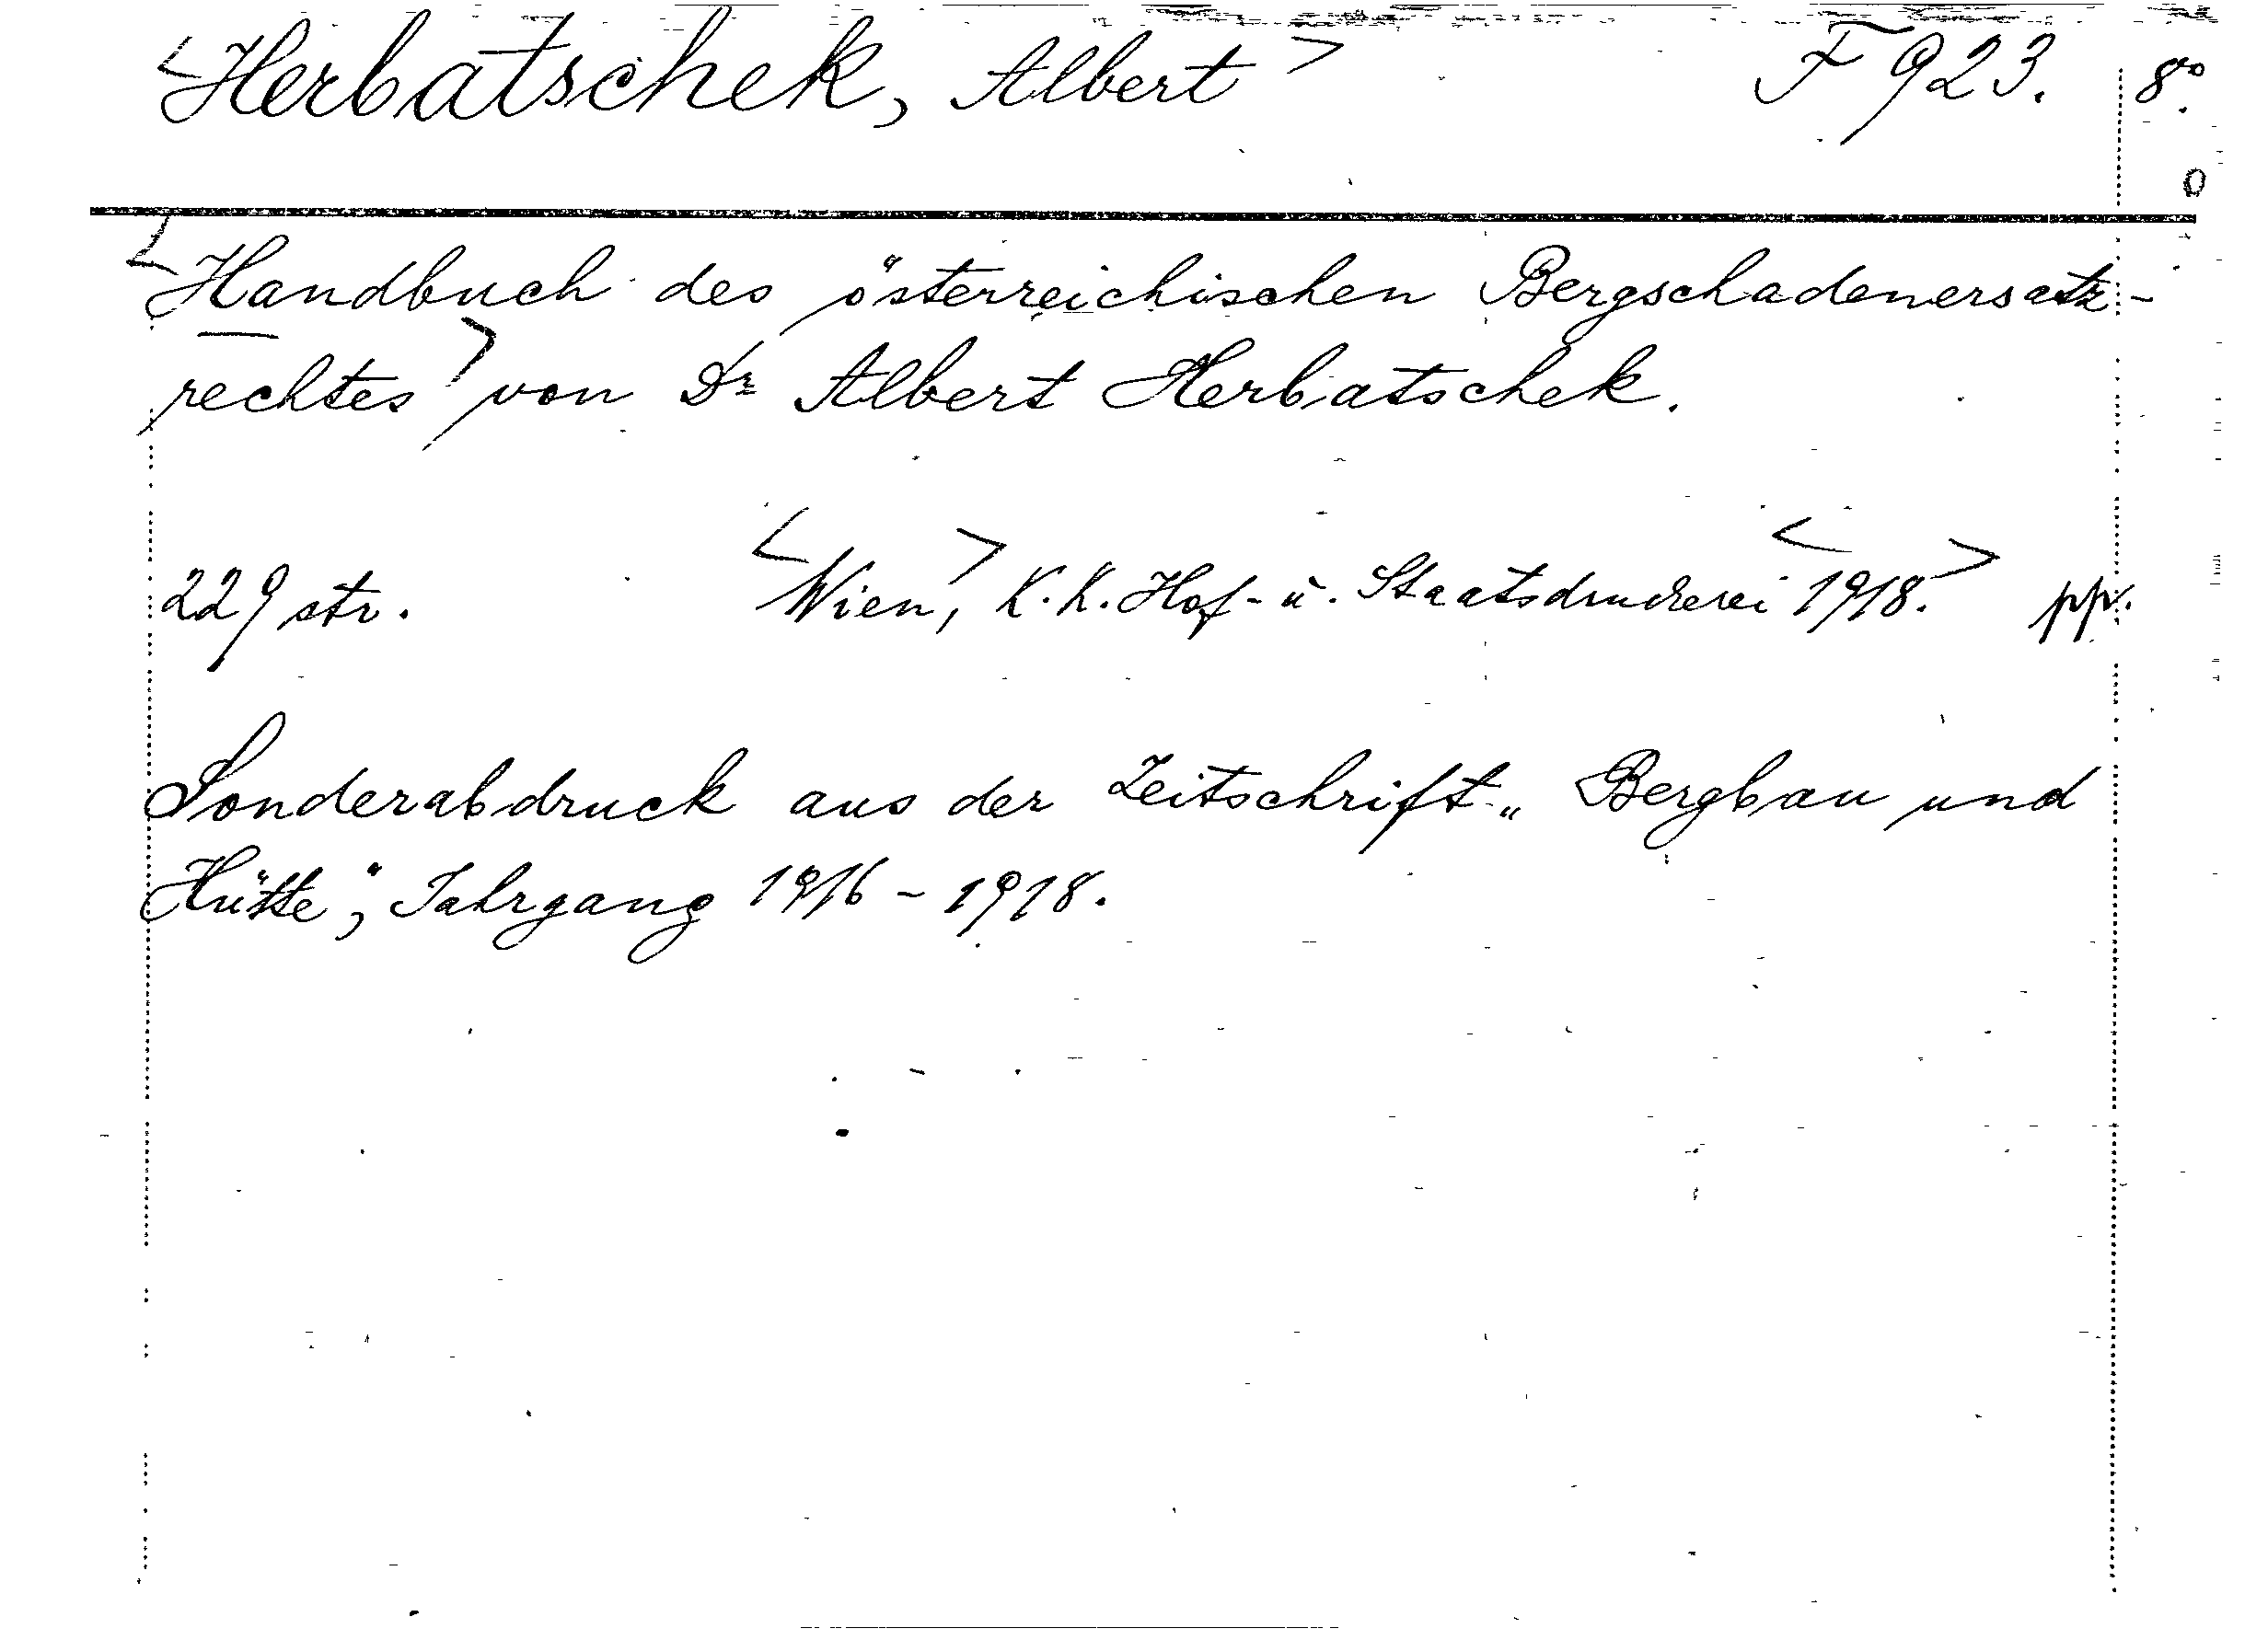 <Herbatschek, Albert> F 923. 8°.
0
<Handbuch des österreichischen Bergschadenersatz-
rechtes> von Dr Albert Herbatschek.
229 str. <Wien,> K. K. Hof- u. Staatsdruckerei <1918.> pp.
Sonderabdruck aus der Zeitschrift „Bergbau und
Hütte", Jahrgang 1916 - 1918.